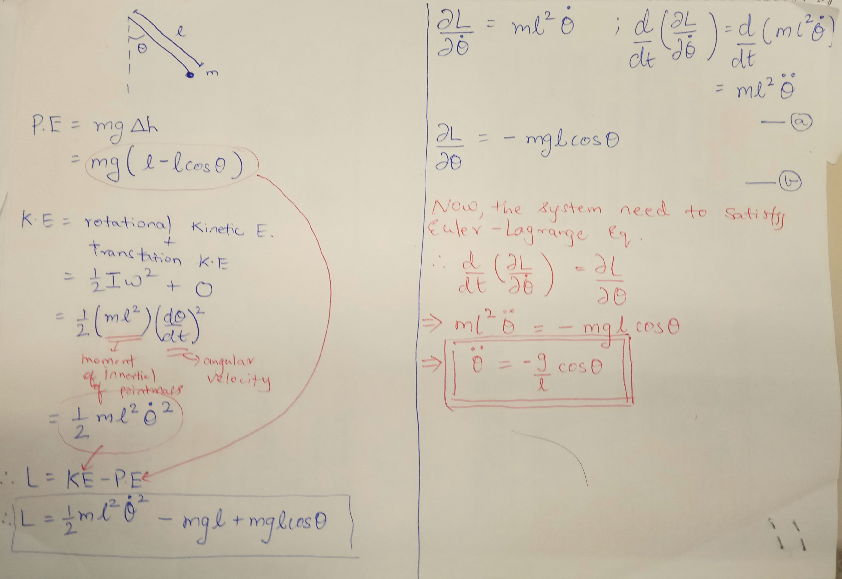 θ
l
m
P.E = mg Δh
= mg(l - lcosθ)
K.E = rotational Kinetic E.
+
transtition K.E
= 1/2 Iω² + 0
= 1/2 (ml²)(dθ/dt)²
moment
of Innertial
of pointmass
angular
velocity
= 1/2 ml² θ̇²
∴ L = KE - PE
∴ L = 1/2 ml² θ̇² - mgl + mglcosθ
∂L/∂θ̇ = ml² θ̇ ; d/dt (∂L/∂θ̇) = d/dt (ml² θ̇)
= ml² θ̈
— ⓐ
∂L/∂θ = - mgl cosθ
— ⓑ
Now, the system need to satisfy
Euler-Lagrange Eq.
∴ d/dt (∂L/∂θ̇) = ∂L/∂θ
⇒ ml² θ̈ = - mgl cosθ
⇒ θ̈ = -g/l cosθ